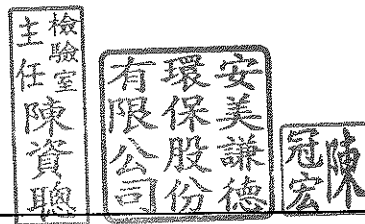 檢驗室
主任 陳資聰
安美謙德
環保股份
有限公司
陳
冠宏